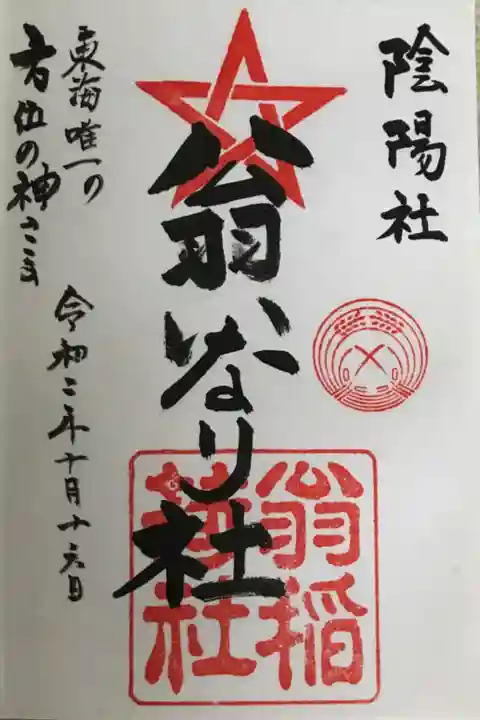 陰陽社
翁いなり社
東海唯一の
方位の神さま
令和二年十月十六日
翁稲
荷社